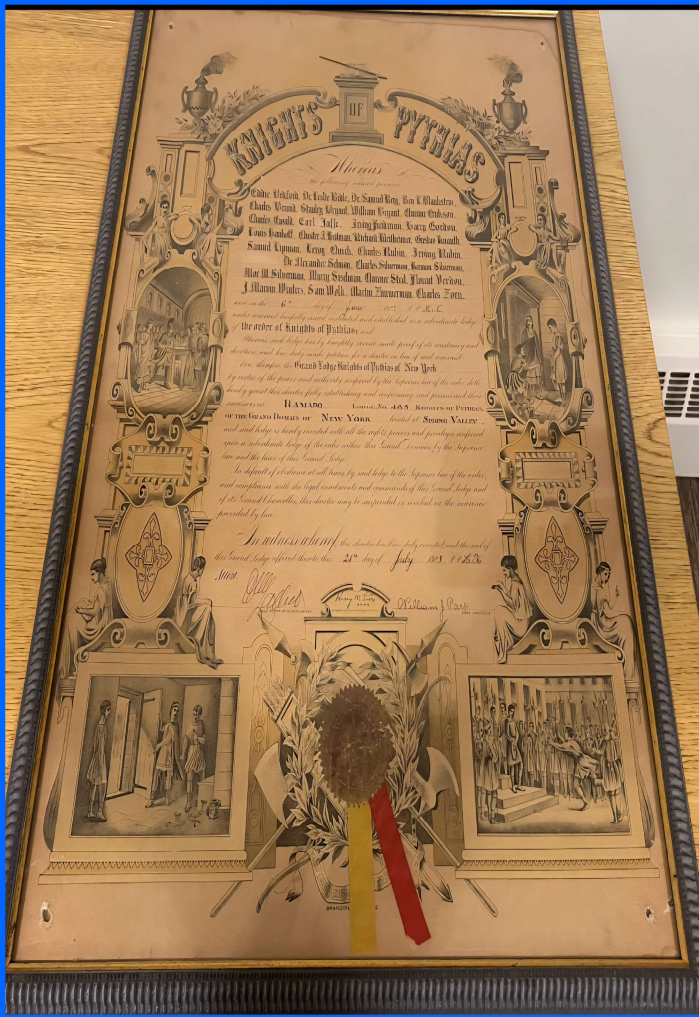 KNIGHTS OF PYTHIAS
Whereas
the following named persons
Eddie Bedford, Dr. Leslie Bible, Dr. Samuel Berg, Ben L. Blaukstein,
Charles Brand, Stanley Bryant, William Bryant, Clarence Erickson,
Charles Ewald, Earl Jaffe, Irving Friedman, Barry Gordon,
Louis Bankoff, Chester J. Richard
Samuel Lipman, Leroy Quick, Charles Rubin, Irving Rubin,
Dr. Alexander Selman, Charles Silverman, Herman Silverman,
Moe W. Silverman, Murry Sissman, Clarence Sted, Verdon,
J. Marvin Winters, Sam Wolk, Martin Zimmerman, Charles Zorn,
were on the 6th day of June
under warrant lawfully issued instituted and established as a subordinate lodge
of the order of Knights of Pythias; and
Whereas said lodge has by knightly service made proof of its constancy and
devotion, and has duly made petition for a charter in lieu of said warrant
now therefore the Grand Lodge Knights of Pythias of New York
by virtue of the power and authority conferred by the Supreme law of the order, doth
hereby grant this charter, fully establishing and confirming said persons and their
successors as RAMAPO LODGE No. 483 KNIGHTS OF PYTHIAS,
OF THE GRAND DOMAIN OF NEW YORK located at SPRING VALLEY
and said lodge is hereby invested with all the rights, powers and privileges conferred
upon a subordinate lodge of the order within this Grand Domain by the Supreme
law and the laws of this Grand Lodge.
In default of obedience at all times by said lodge to the Supreme law of the order,
and compliance with the legal enactments and commands of this Grand Lodge and
of its Grand Chancellor, this charter may be suspended or revoked in the manner
provided by law.
In witness whereof, this charter has been duly executed, and the seal of
this Grand Lodge affixed thereto, this 28th day of July
Attest
William J. Park